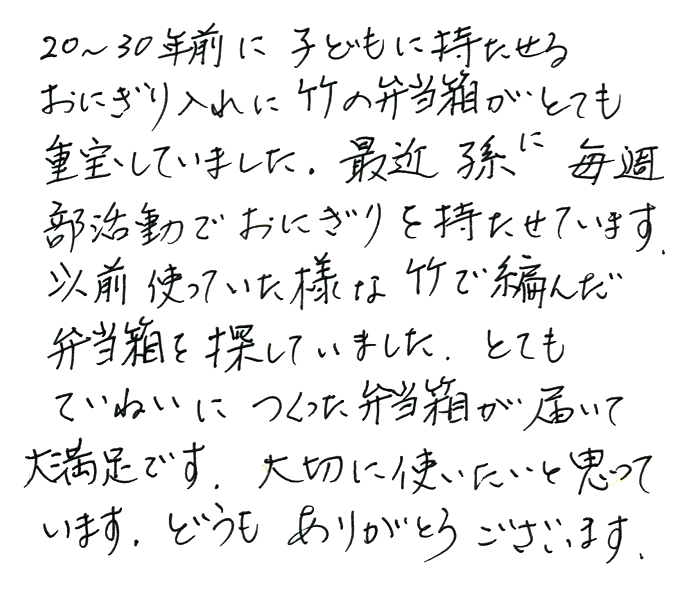 20～30年前に子どもに持たせる
おにぎり入れに竹の弁当箱がとても
重宝していました。最近孫に毎週
部活動でおにぎりを持たせています。
以前使っていた様な竹で編んだ
弁当箱を探していました。とても
ていねいにつくった弁当箱が届いて
大満足です。大切に使いたいと思って
います。どうもありがとうございます。